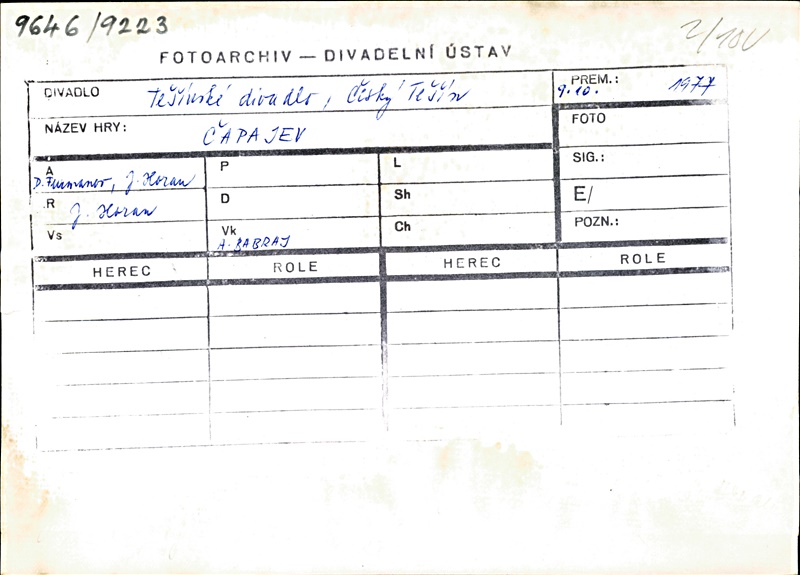 9646/9223
2/100
FOTOARCHIV — DIVADELNÍ ÚSTAV
DIVADLO Těšínské divadlo, Český Těšín
PREM.: 9.10. 1977
NÁZEV HRY: ČAPAJEV
FOTO
SIG.:
E/
POZN.:
A D. Furmanov, J. Horan
P
L
R J. Horan
D
Sh
Vs
Vk A. BABRAJ
Ch
HEREC ROLE HEREC ROLE